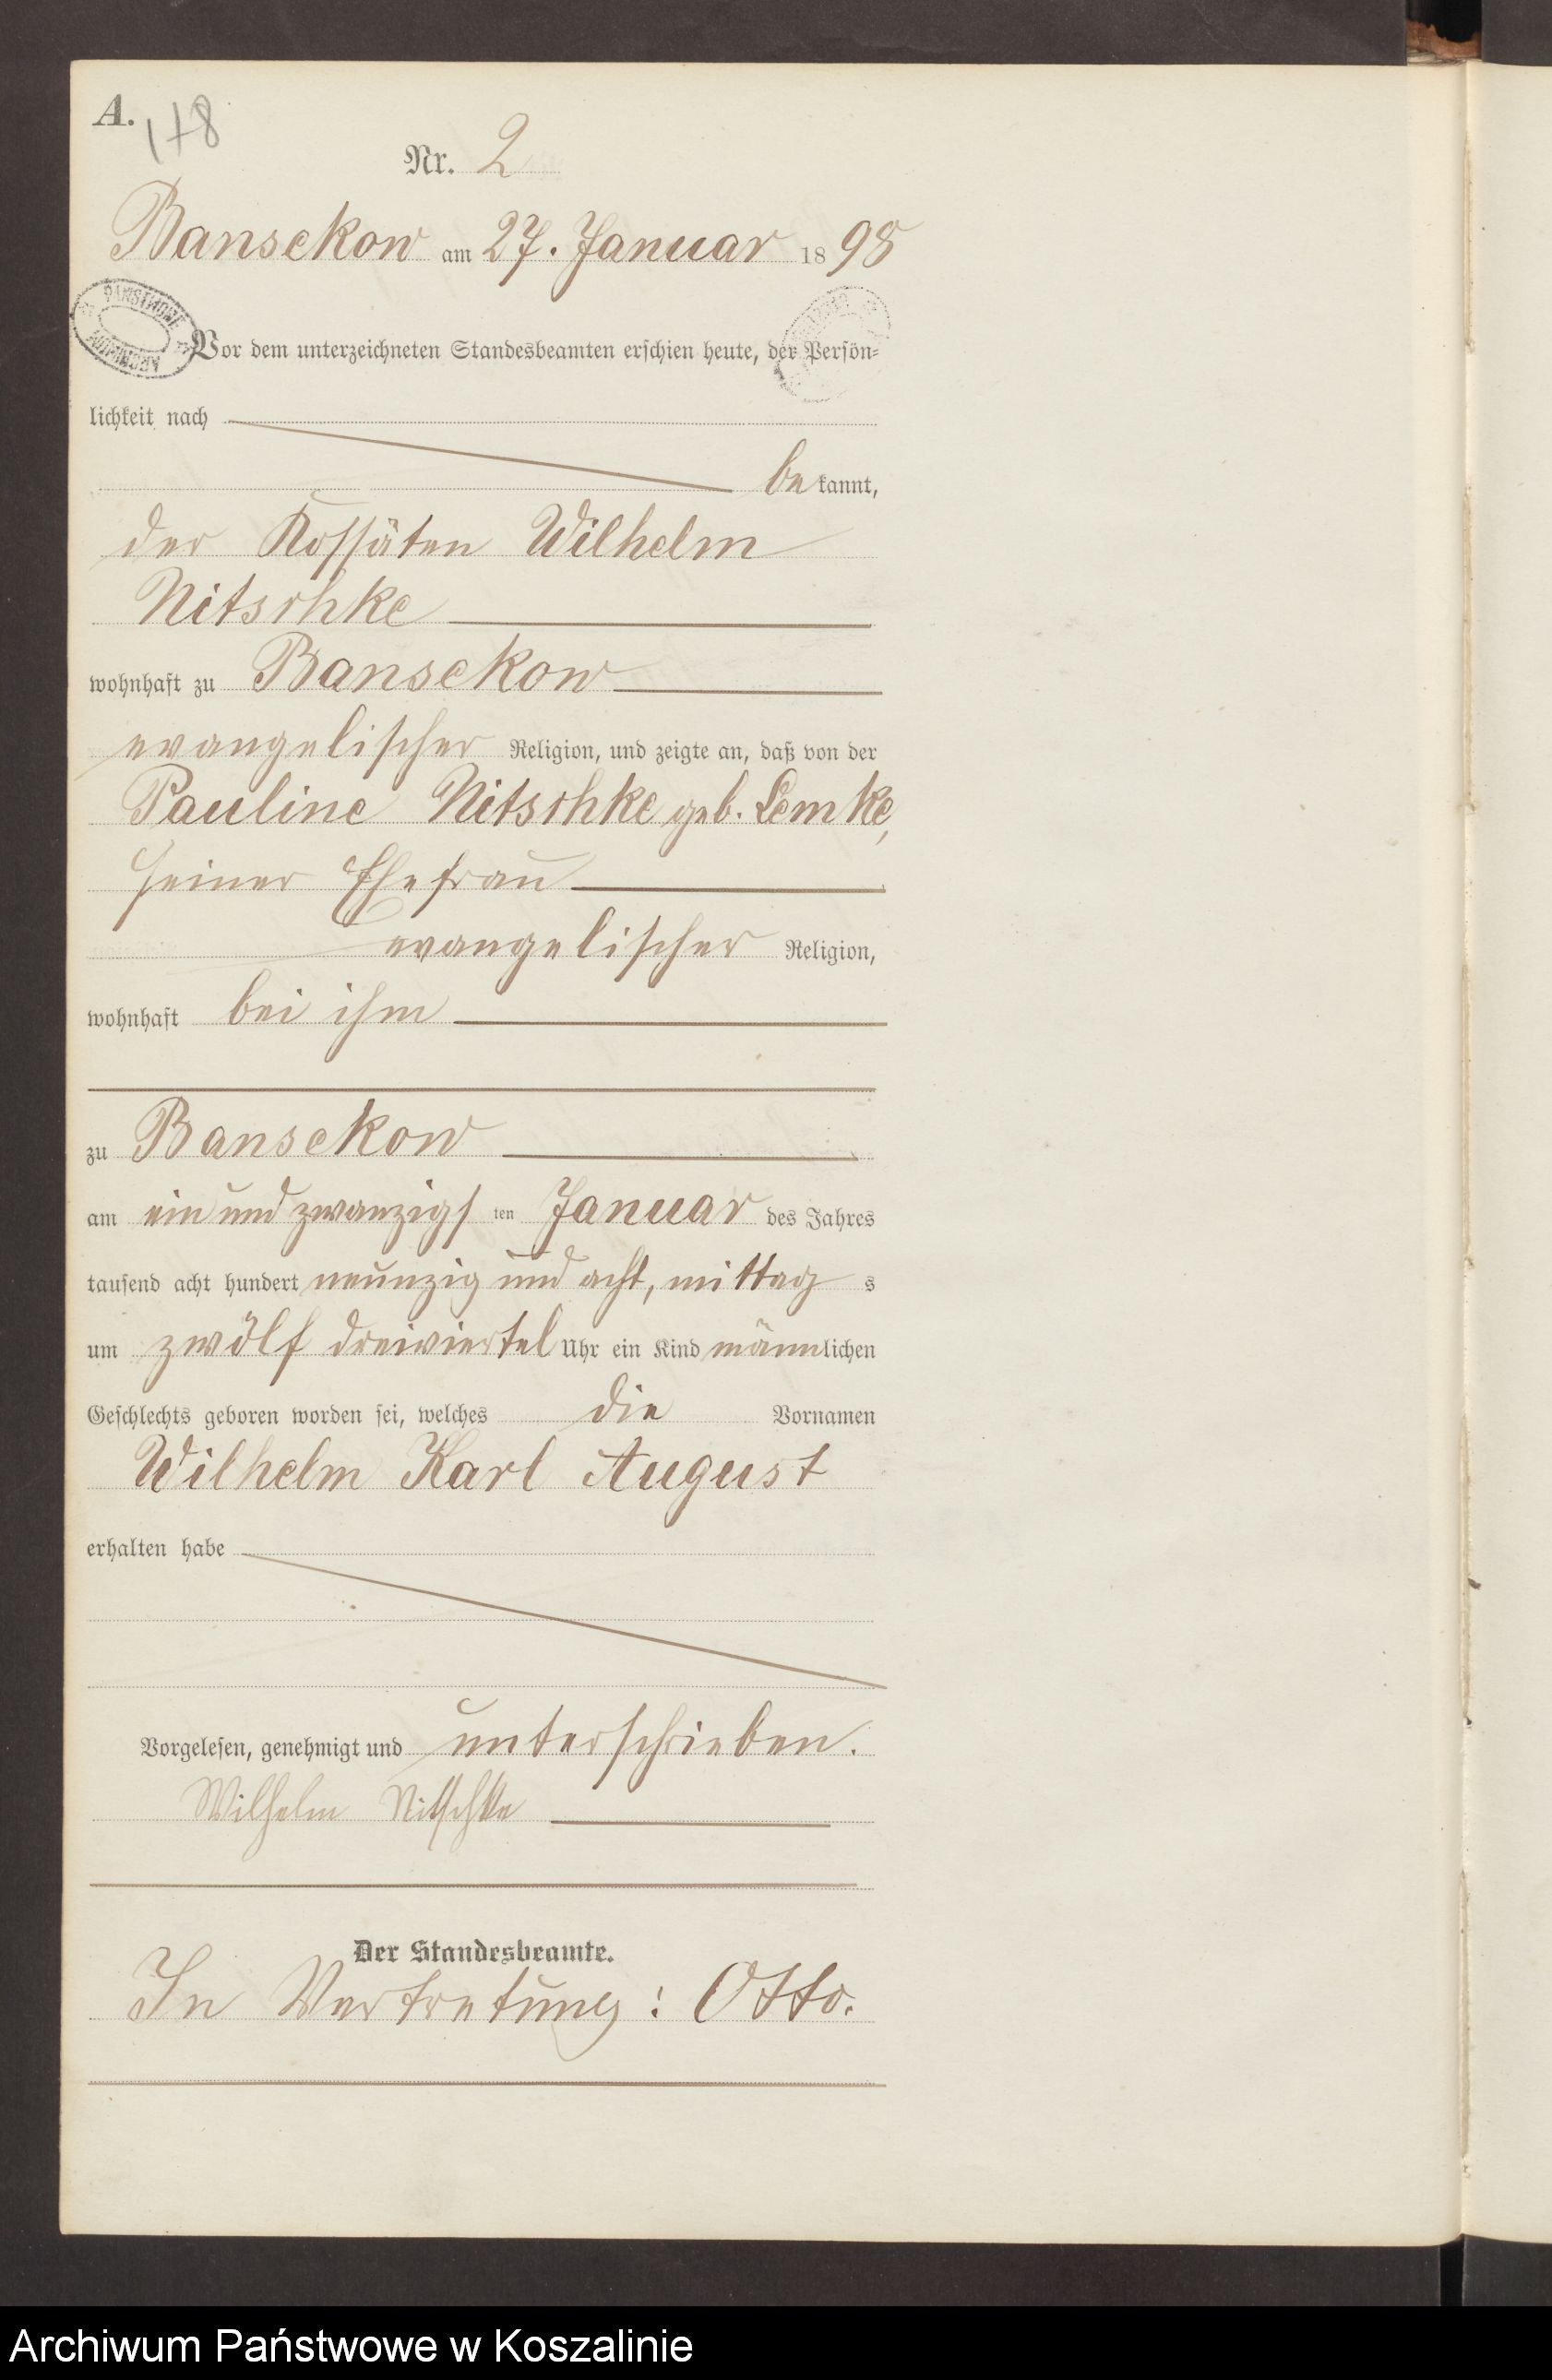 A.
178
Nr. 2
Bansekow am 27. Januar 1898
PAŃSTWOWE
ARCHIWUM
Vor dem unterzeichneten Standesbeamten erschien heute, der Persön=
lichkeit nach
be kannt,
der Kossäten Wilhelm
Nitschke
wohnhaft zu Bansekow
evangelischer Religion, und zeigte an, daß von der
Pauline Nitschke geb. Lemke,
seiner Ehefrau
evangelischer Religion,
wohnhaft bei ihm
zu Bansekow
am ein und zwanzigs ten Januar des Jahres
tausend acht hundert neunzig und acht, mittag s
um zwölf dreiviertel Uhr ein Kind männlichen
Geschlechts geboren worden sei, welches die Vornamen
Wilhelm Karl August
erhalten habe
Vorgelesen, genehmigt und unterschrieben.
Wilhelm Nitschke
Der Standesbeamte.
In Vertretung: Otto.
Archiwum Państwowe w Koszalinie